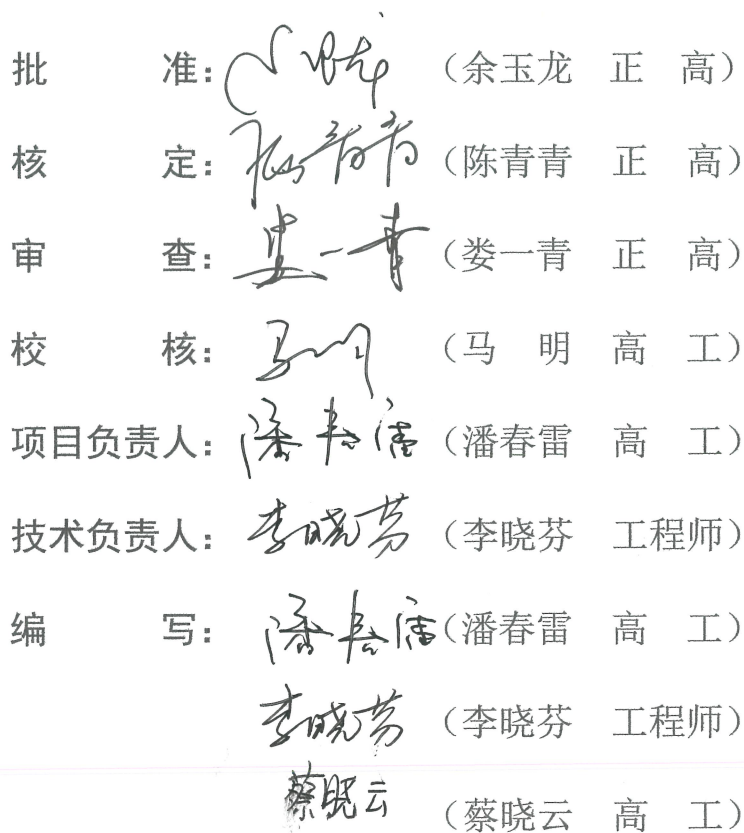 批 准： 余玉龙 （余玉龙 正 高）
核 定： 陈青青 （陈青青 正 高）
审 查： 娄一青 （娄一青 正 高）
校 核： 马明 （马 明 高 工）
项目负责人： 潘春雷 （潘春雷 高 工）
技术负责人： 李晓芬 （李晓芬 工程师）
编 写： 潘春雷 （潘春雷 高 工）
李晓芬 （李晓芬 工程师）
蔡晓云 （蔡晓云 高 工）